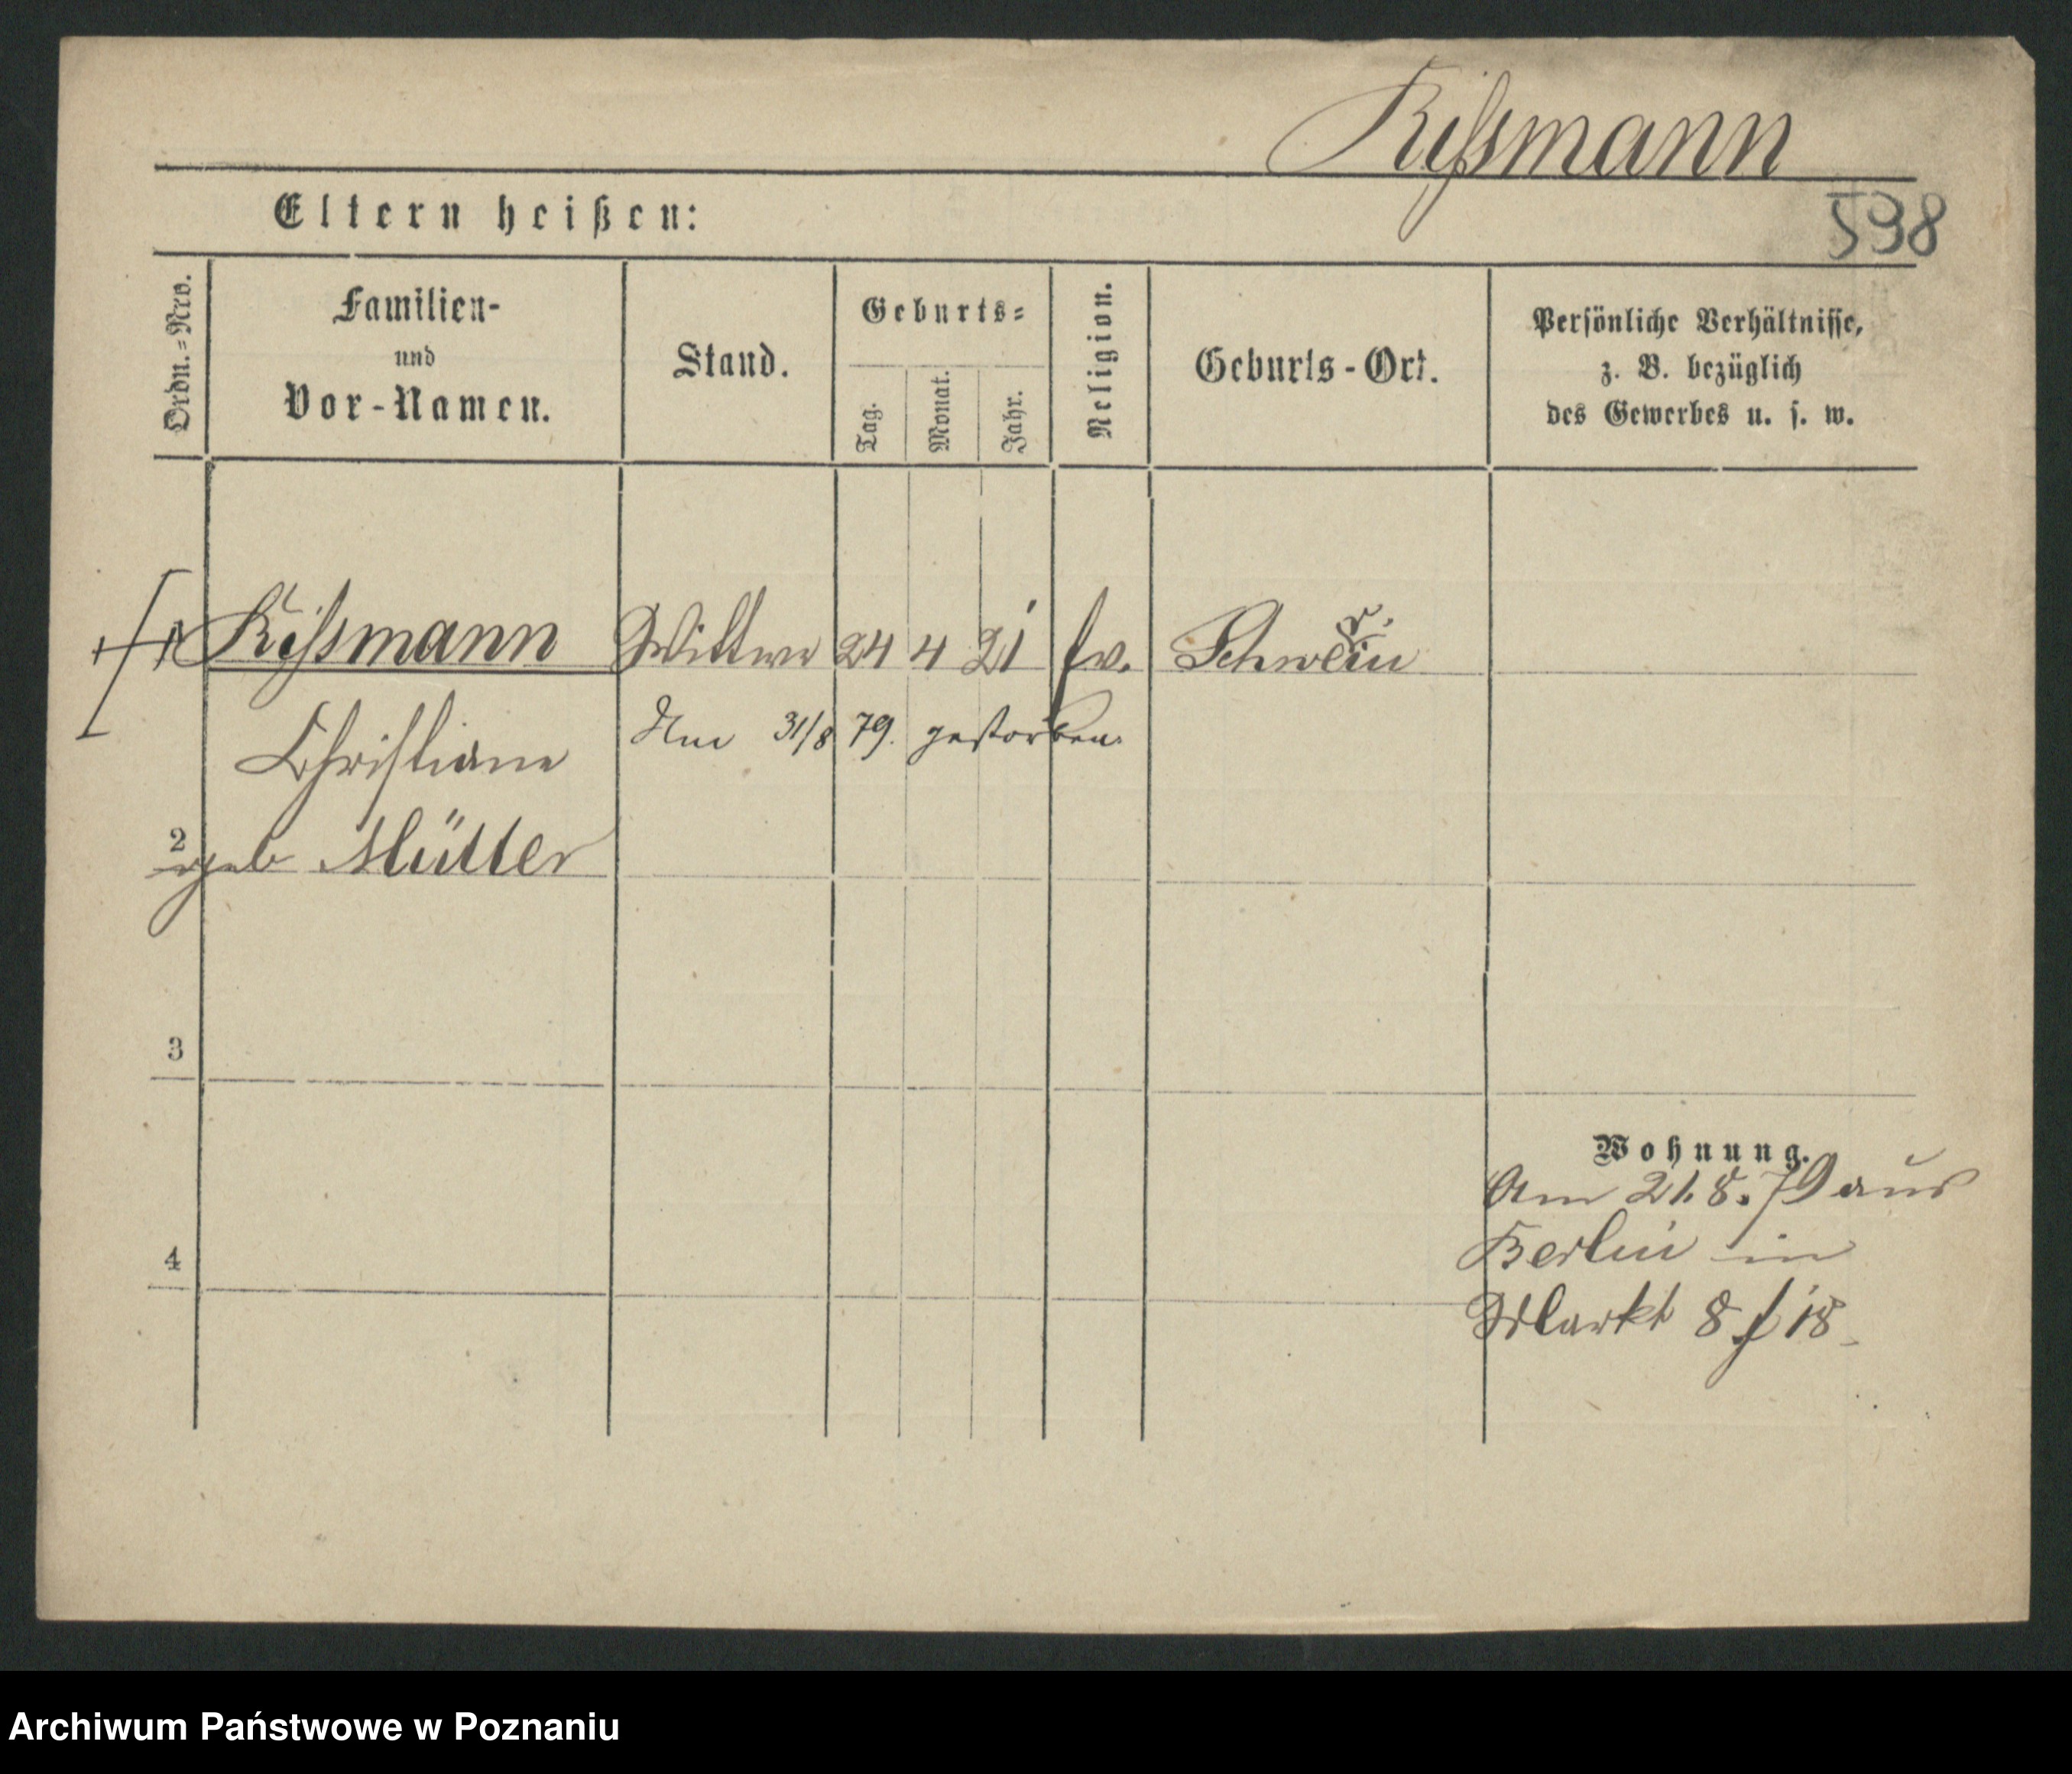 Rißmann
598
Eltern heißen:
Ordn.=Nro.
Familien-
und
Vor-Namen.
Stand.
Geburts=
Tag.
Monat.
Jahr.
Religion.
Geburts-Ort.
Persönliche Verhältnisse,
z. B. bezüglich
des Gewerbes u. s. w.
Rißmann Wittwe 24 4 21 ev. Schwerin
Christiane Am 31/8 79. gestorben.
2
geb Müller
3
Wohnung.
Am 21.8.79 aus
4
Berlin in
Markt 8 f 18
Archiwum Państwowe w Poznaniu